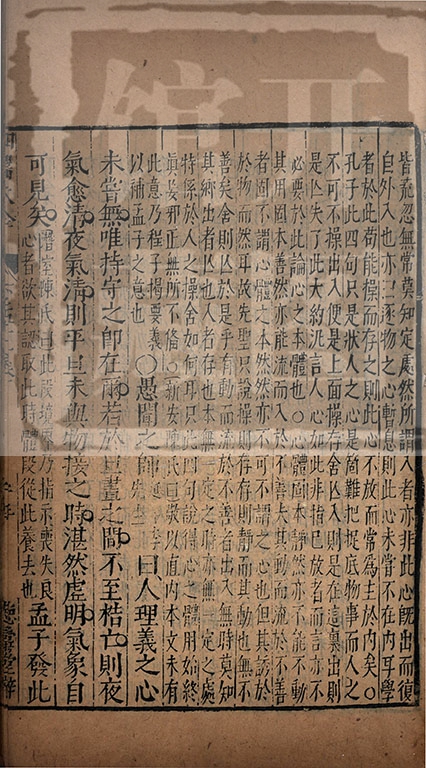 皆荒忽無常莫知定處然所謂入者亦非此心既出而復
自外入也亦曰逐物之心暫息則此心未嘗不在内耳學
者於此苟能操而存之則此心不放而常爲主於内矣○
孔子此四句只是狀人之心是箇難把捉底物事而人之
不可不操出入便是上面操存舍亡入則是在這裏出則
是亡失了此大約泛言人心如此非指已放者而言亦不
必要於此論心之本體也○心體固本靜然亦不能不動
其用固本善然亦能流而入於不善夫其動而流於不善
者固不謂心體之本然然亦不可不謂之心也但其誘於
於物而然耳故先聖只說操則存存則靜而其動也無不
善矣舍則亡於是乎有動而流於不善者出入無時莫知
其鄉出者亡也入者存也本無一定之時亦無一定之處
特係於人之操舍如何耳只此四句說得心之體用始終
眞妄邪正無所不備○新安陳氏曰敬以直内本文未有
此意乃程子揭要義
以補孟子之意也○愚聞之師曰人理義之心
未嘗無唯持守之即在爾若於旦晝之間不至梏亡則夜
氣愈清夜氣清則平旦未與物接之時湛然虛明氣象自
可見矣潛室陳氏曰此段境界乃指示喪失良
心者欲其認取此時體段從此養去也孟子發此